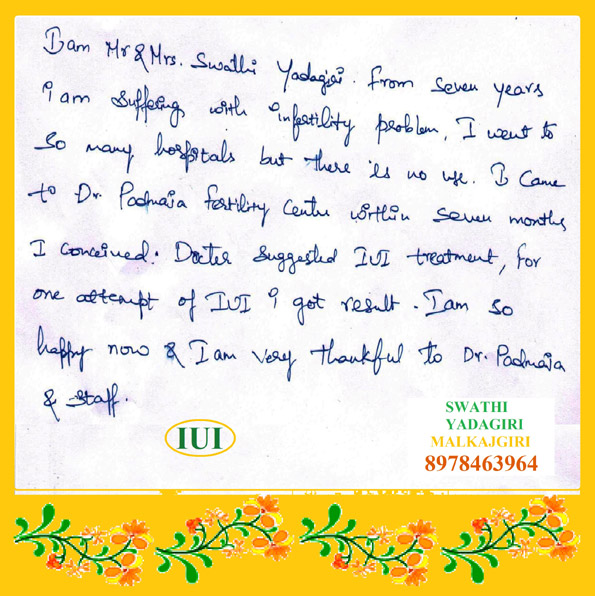 I am Mr & Mrs. Swathi Yadagiri. From seven years
i am suffering with infertility problem, I went to
So many hospitals but there is no use. I Came
to Dr. Padmaja fertility Centre within seven months
I conceived. Docter suggested IUI treatment, for
one attempt of IUI i got result. I am so
happy now & I am very thankful to Dr. Padmaja
& Staff.
IUI
SWATHI
YADAGIRI
MALKAJGIRI
8978463964